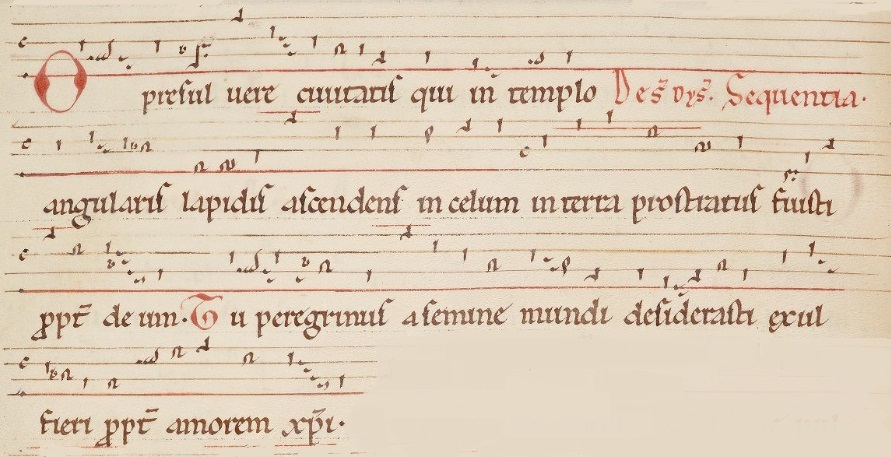 O presul uere ciuitatis qui in templo De s̄ dys̄. Sequentia.
angularis lapidis ascendens in celum in terra prostratus fuisti
ꝓpt̄ deum. Tu peregrinus a semine mundi desiderasti exul
fieri ꝓpt̄ amorem xp̄i.